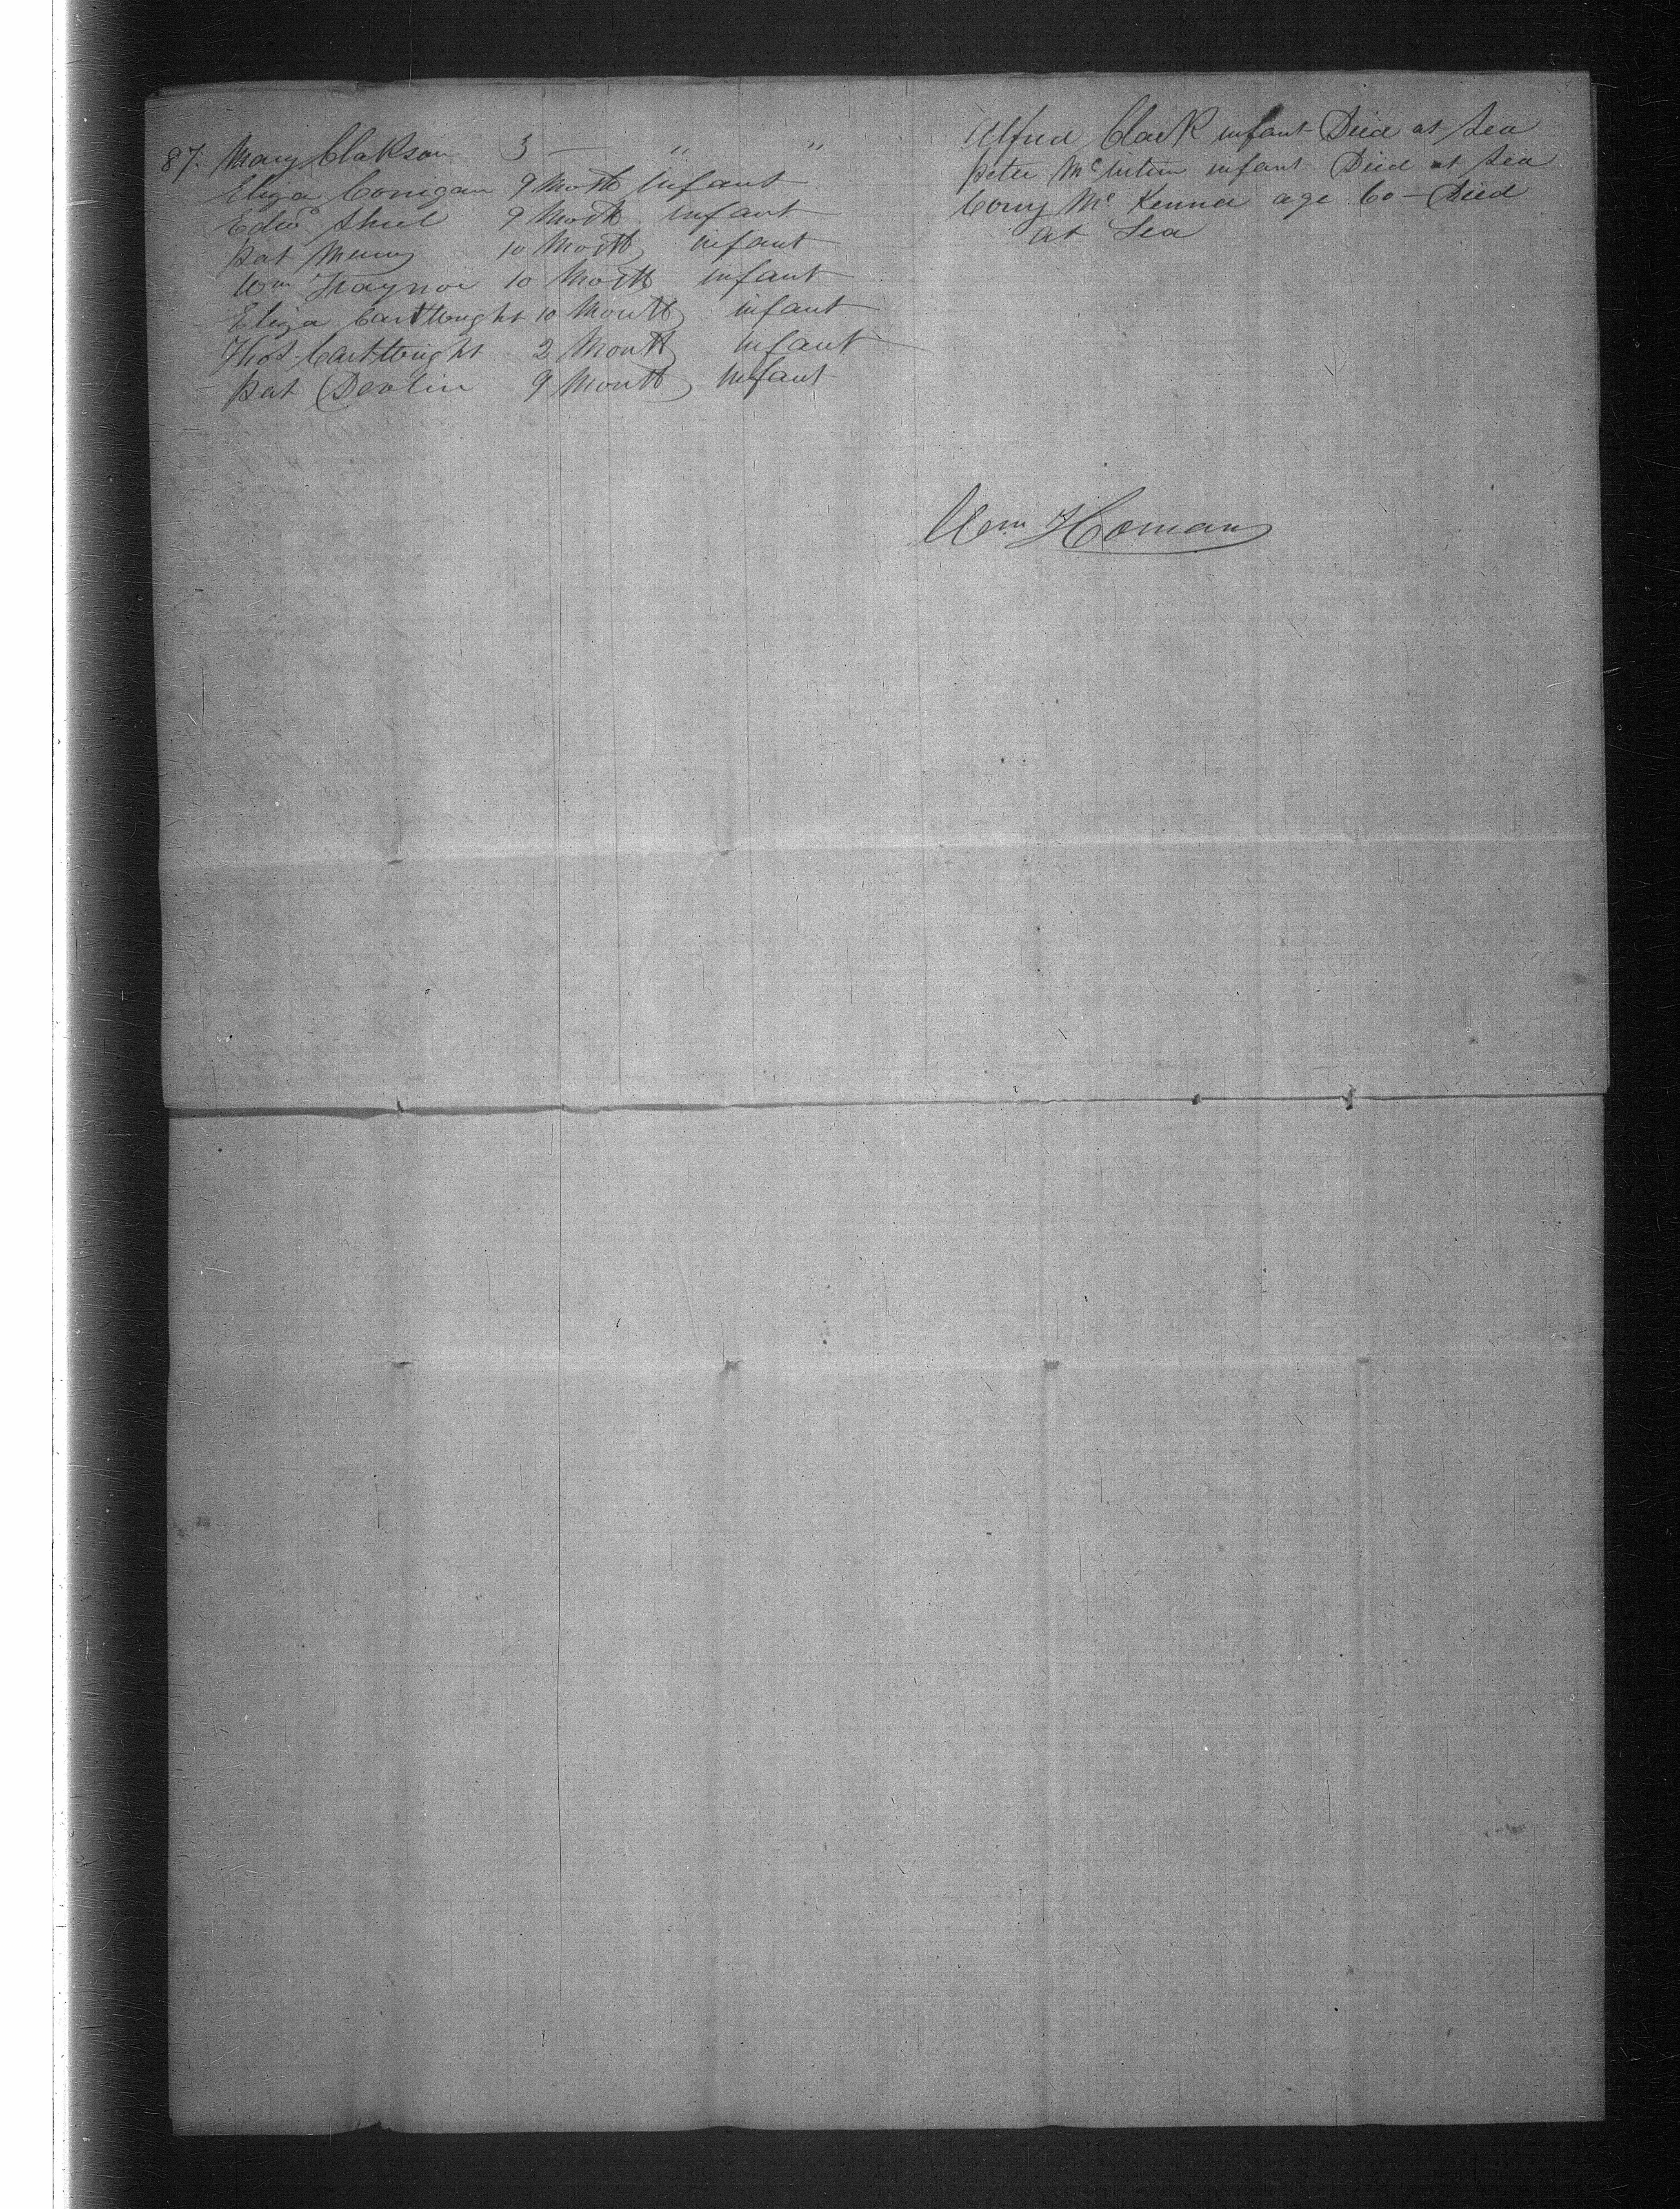 87. Mary Clakson 3 — " "
Eliza Corrigan 9 Month Infant
Edwd Shiel 9 Month infant
Pat 10 Month infant
Wm Traynor 10 Month infant
Eliza Cartwright 10 Month infant
Thos Cartwright 2 Month Infant
Pat Devlin 9 Month Infant
Alfred Clark infant Died at Sea
Peter infant Died at Sea
McKenna age 60 — Died
at Sea
Wm Homan